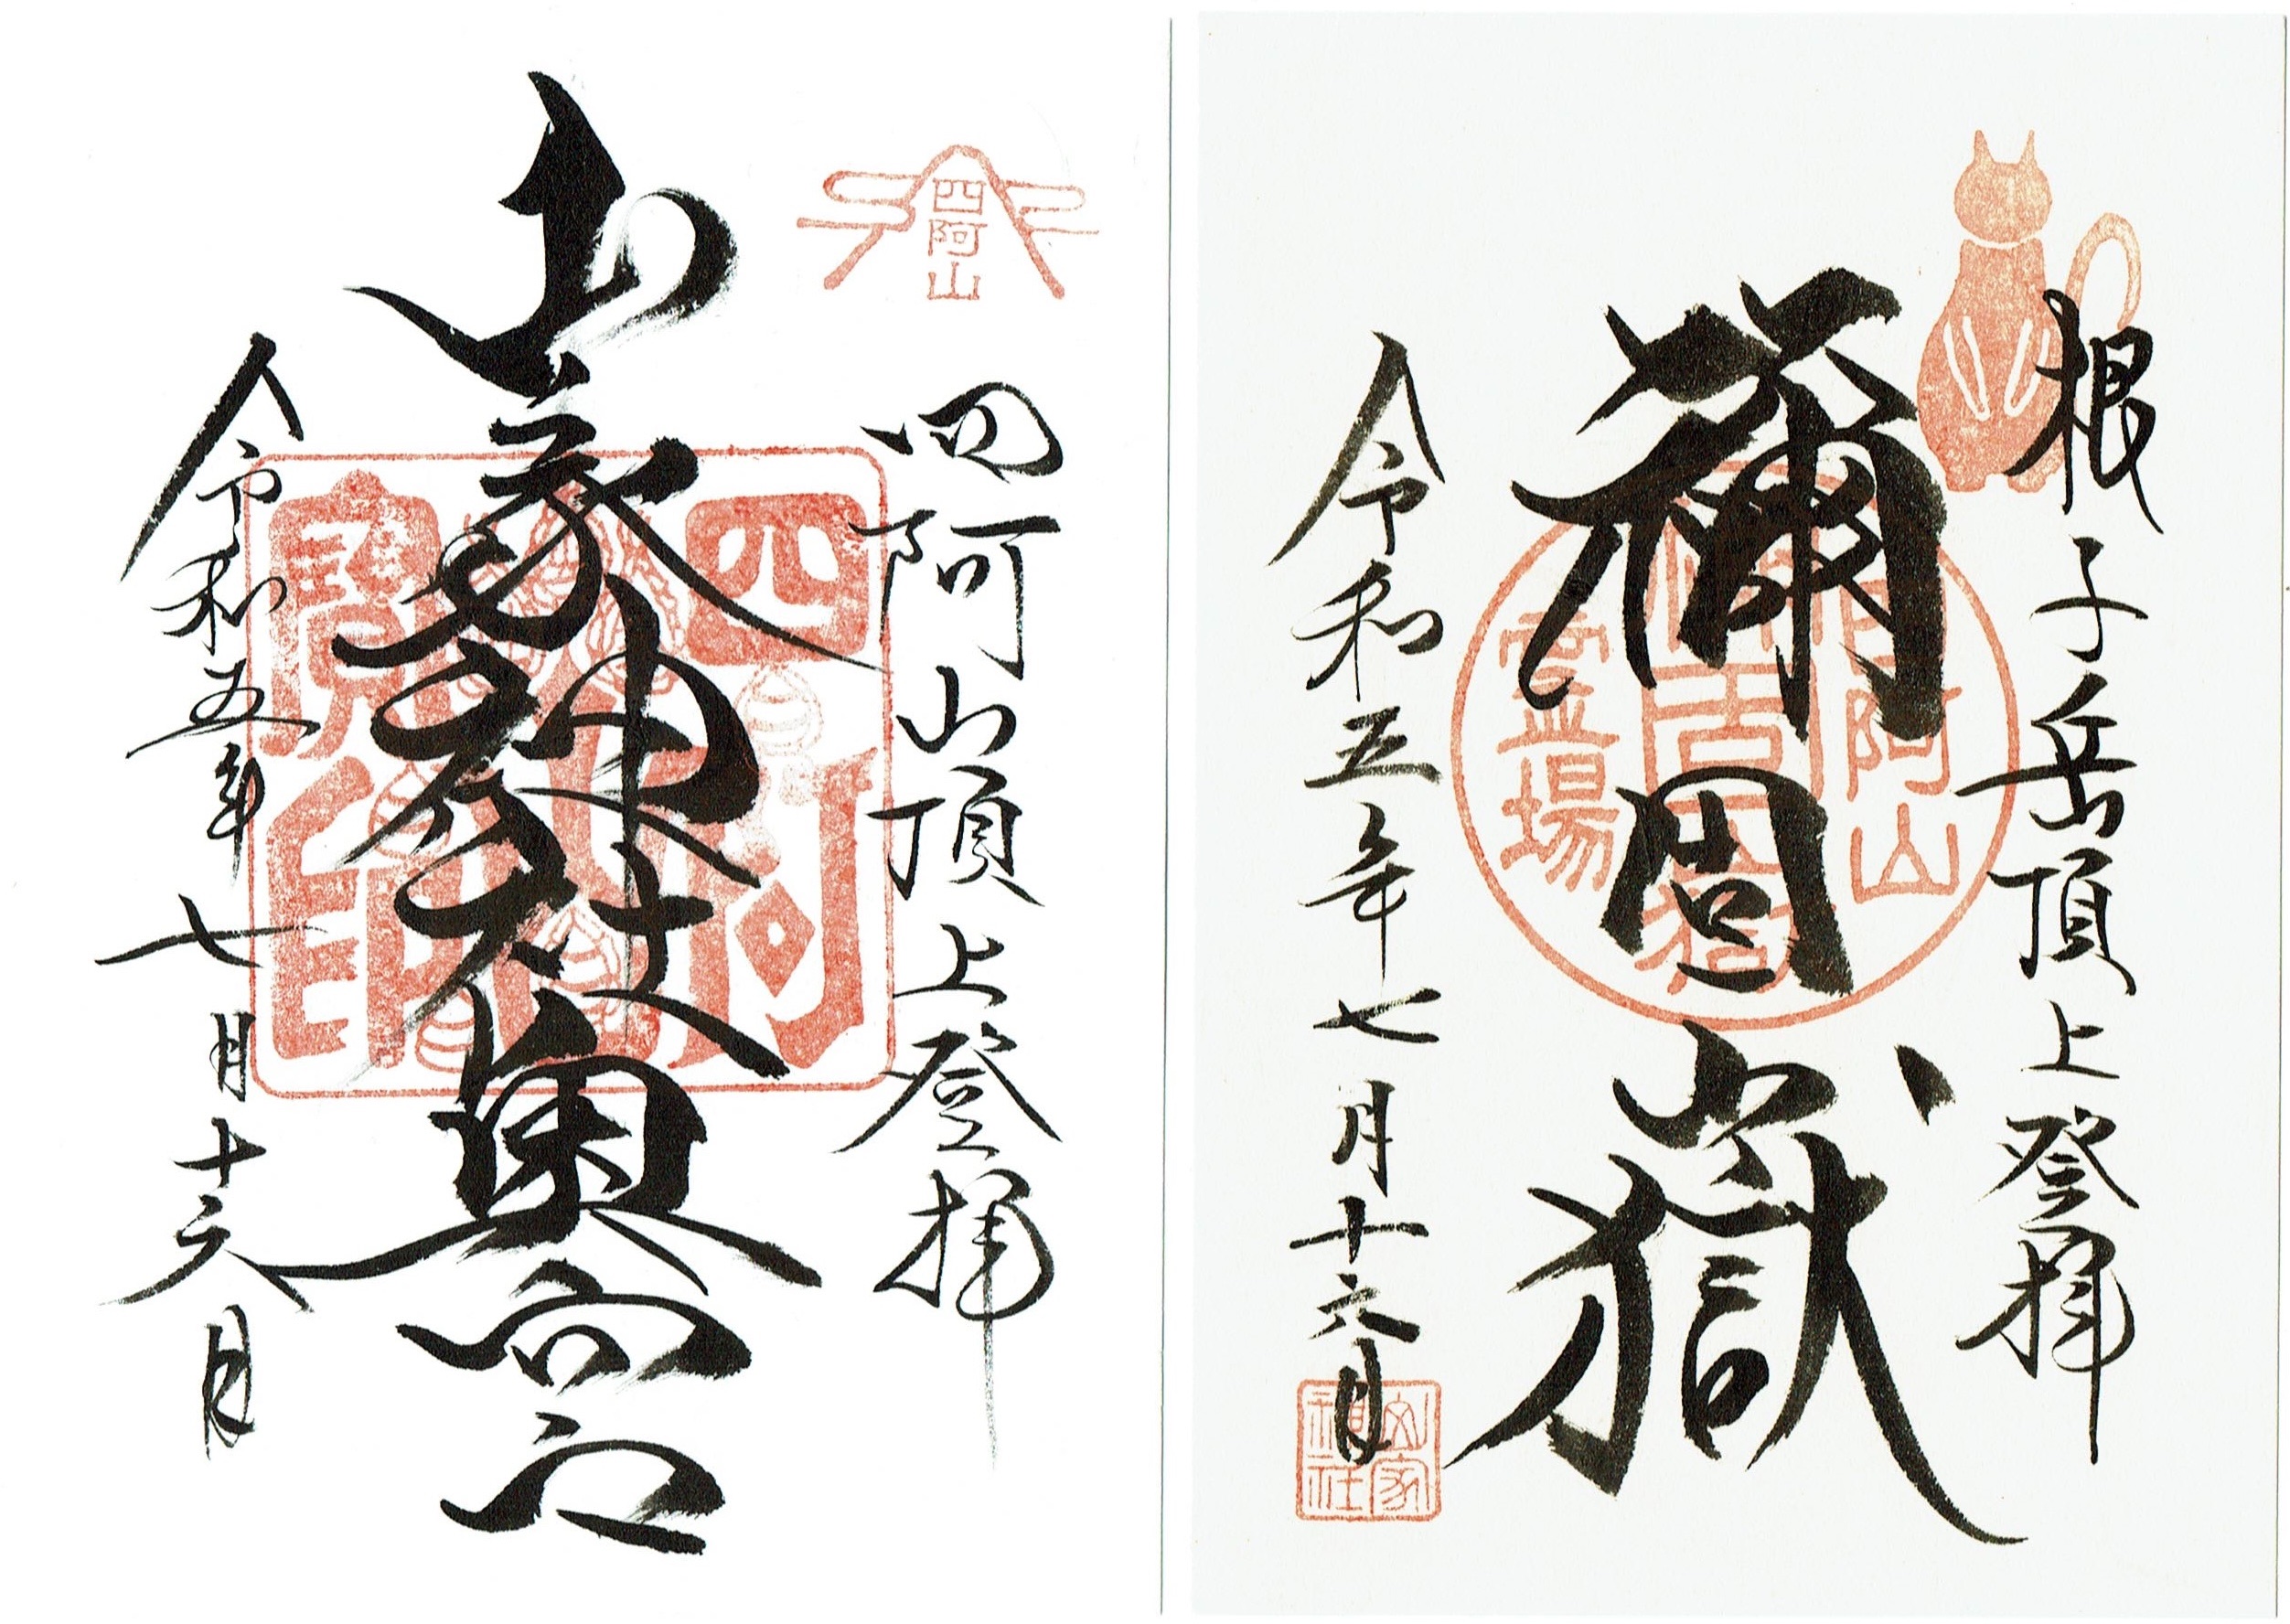 根子岳頂上登拝
禰固嶽
令和五年七月十六日
阿山
霊場
山家
神社
四阿山
四阿山頂上登拝
山家神社奥宮
令和五年七月十六日
四阿
寳印